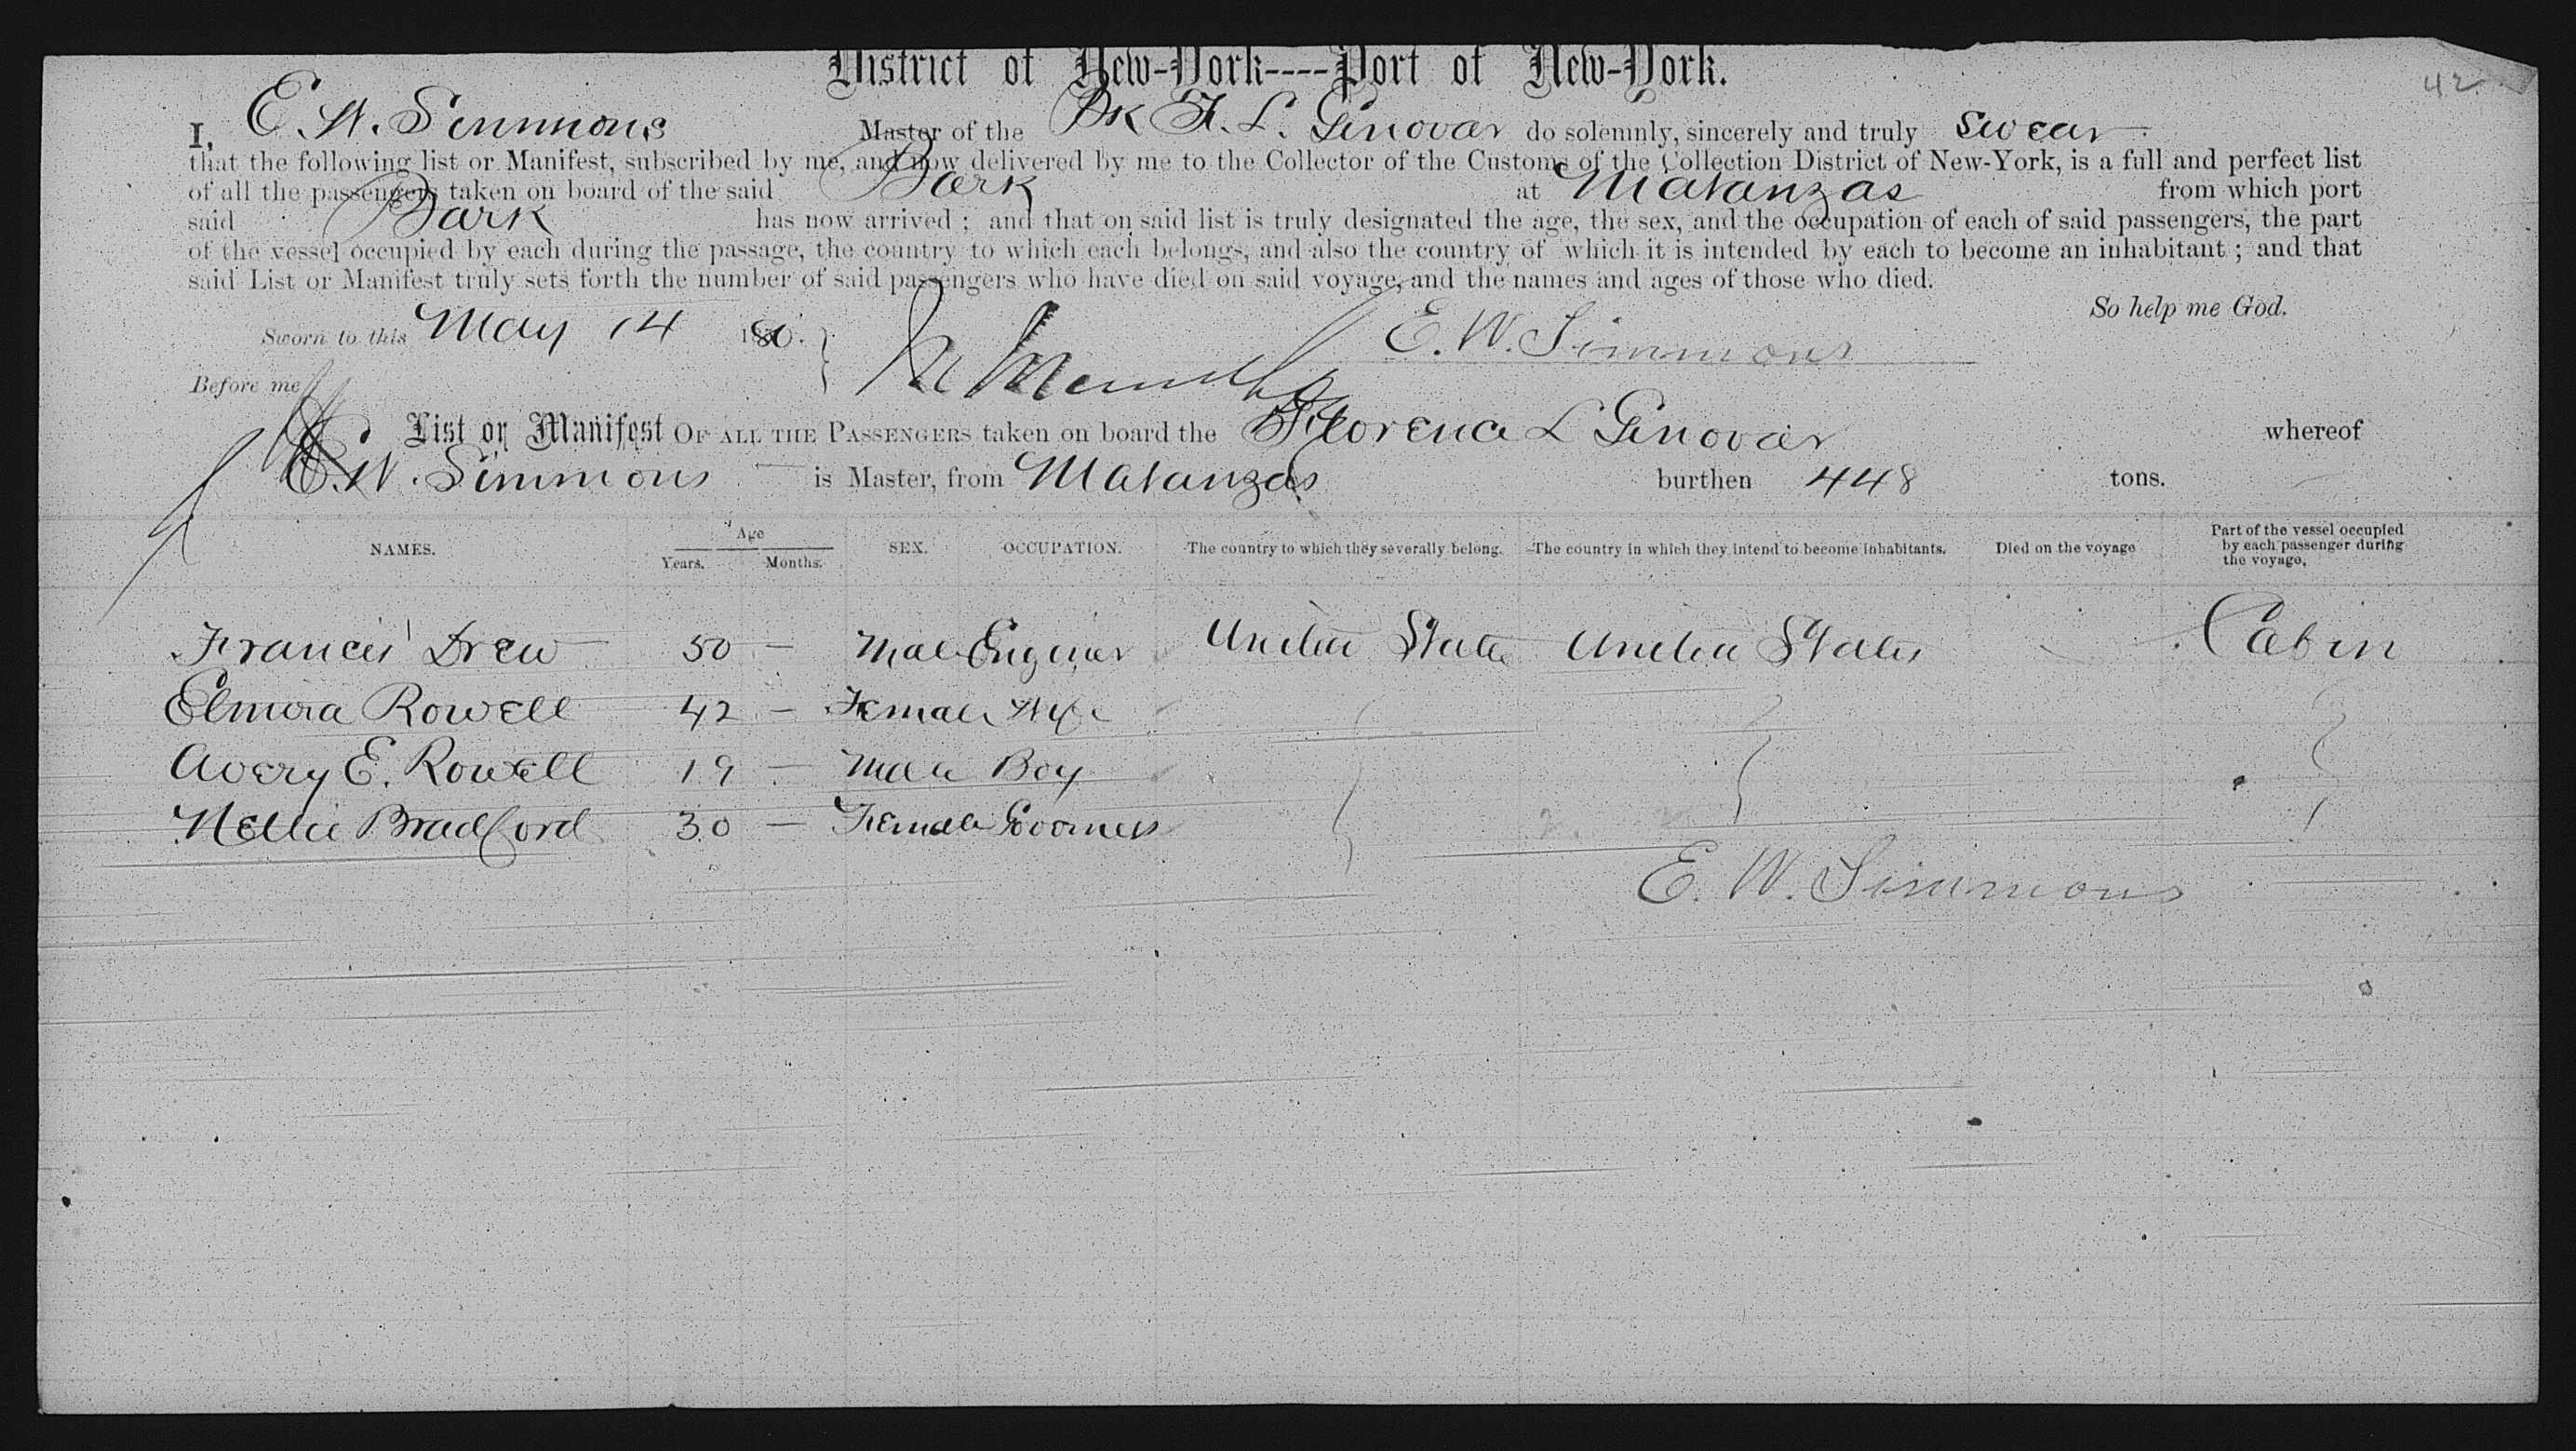 42
District of New-York----Port of New-York.
I, E. W. Simmons Master of the Bk F. L. Genovar do solemnly, sincerely and truly swear
that the following list or Manifest, subscribed by me, and now delivered by me to the Collector of the Customs of the Collection District of New-York, is a full and perfect list
of all the passengers taken on board of the said Bark at Matanzas from which port
said Bark has now arrived ; and that on said list is truly designated the age, the sex, and the occupation of each of said passengers, the part
of the vessel occupied by each during the passage, the country to which each belongs, and also the country of which it is intended by each to become an inhabitant ; and that
said List or Manifest truly sets forth the number of said passengers who have died on said voyage, and the names and ages of those who died.
So help me God.
Sworn to this May 14 1880. E. W. Simmons
Before me
List or Manifest OF ALL THE PASSENGERS taken on board the Florence L Genovar whereof
E. W. Simmons is Master, from Matanzas burthen 448 tons.
NAMES. Age Years. Months. SEX. OCCUPATION. The country to which they severally belong. The country in which they intend to become inhabitants. Died on the voyage Part of the vessel occupied by each passenger during the voyage.
Francis Drew 50 — Male Engineer United States United States Cabin
Elmira Rowell 42 — Female Wife
Avery E. Rowell 19 — Male Boy
Nellie Bradford 30 — Female Governess
E. W. Simmons